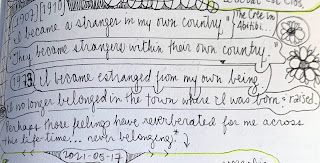 [1907] [1910]
"I became a stranger in my own country"
"They became strangers within their own country."
The Cree in Abitibi...
[1973] I became estranged from my own being
I no longer belonged in the town where I was born & raised.
Perhaps those feelings have reverberated for me across
this life-time... never belonging." ↓
(2021-05-17)